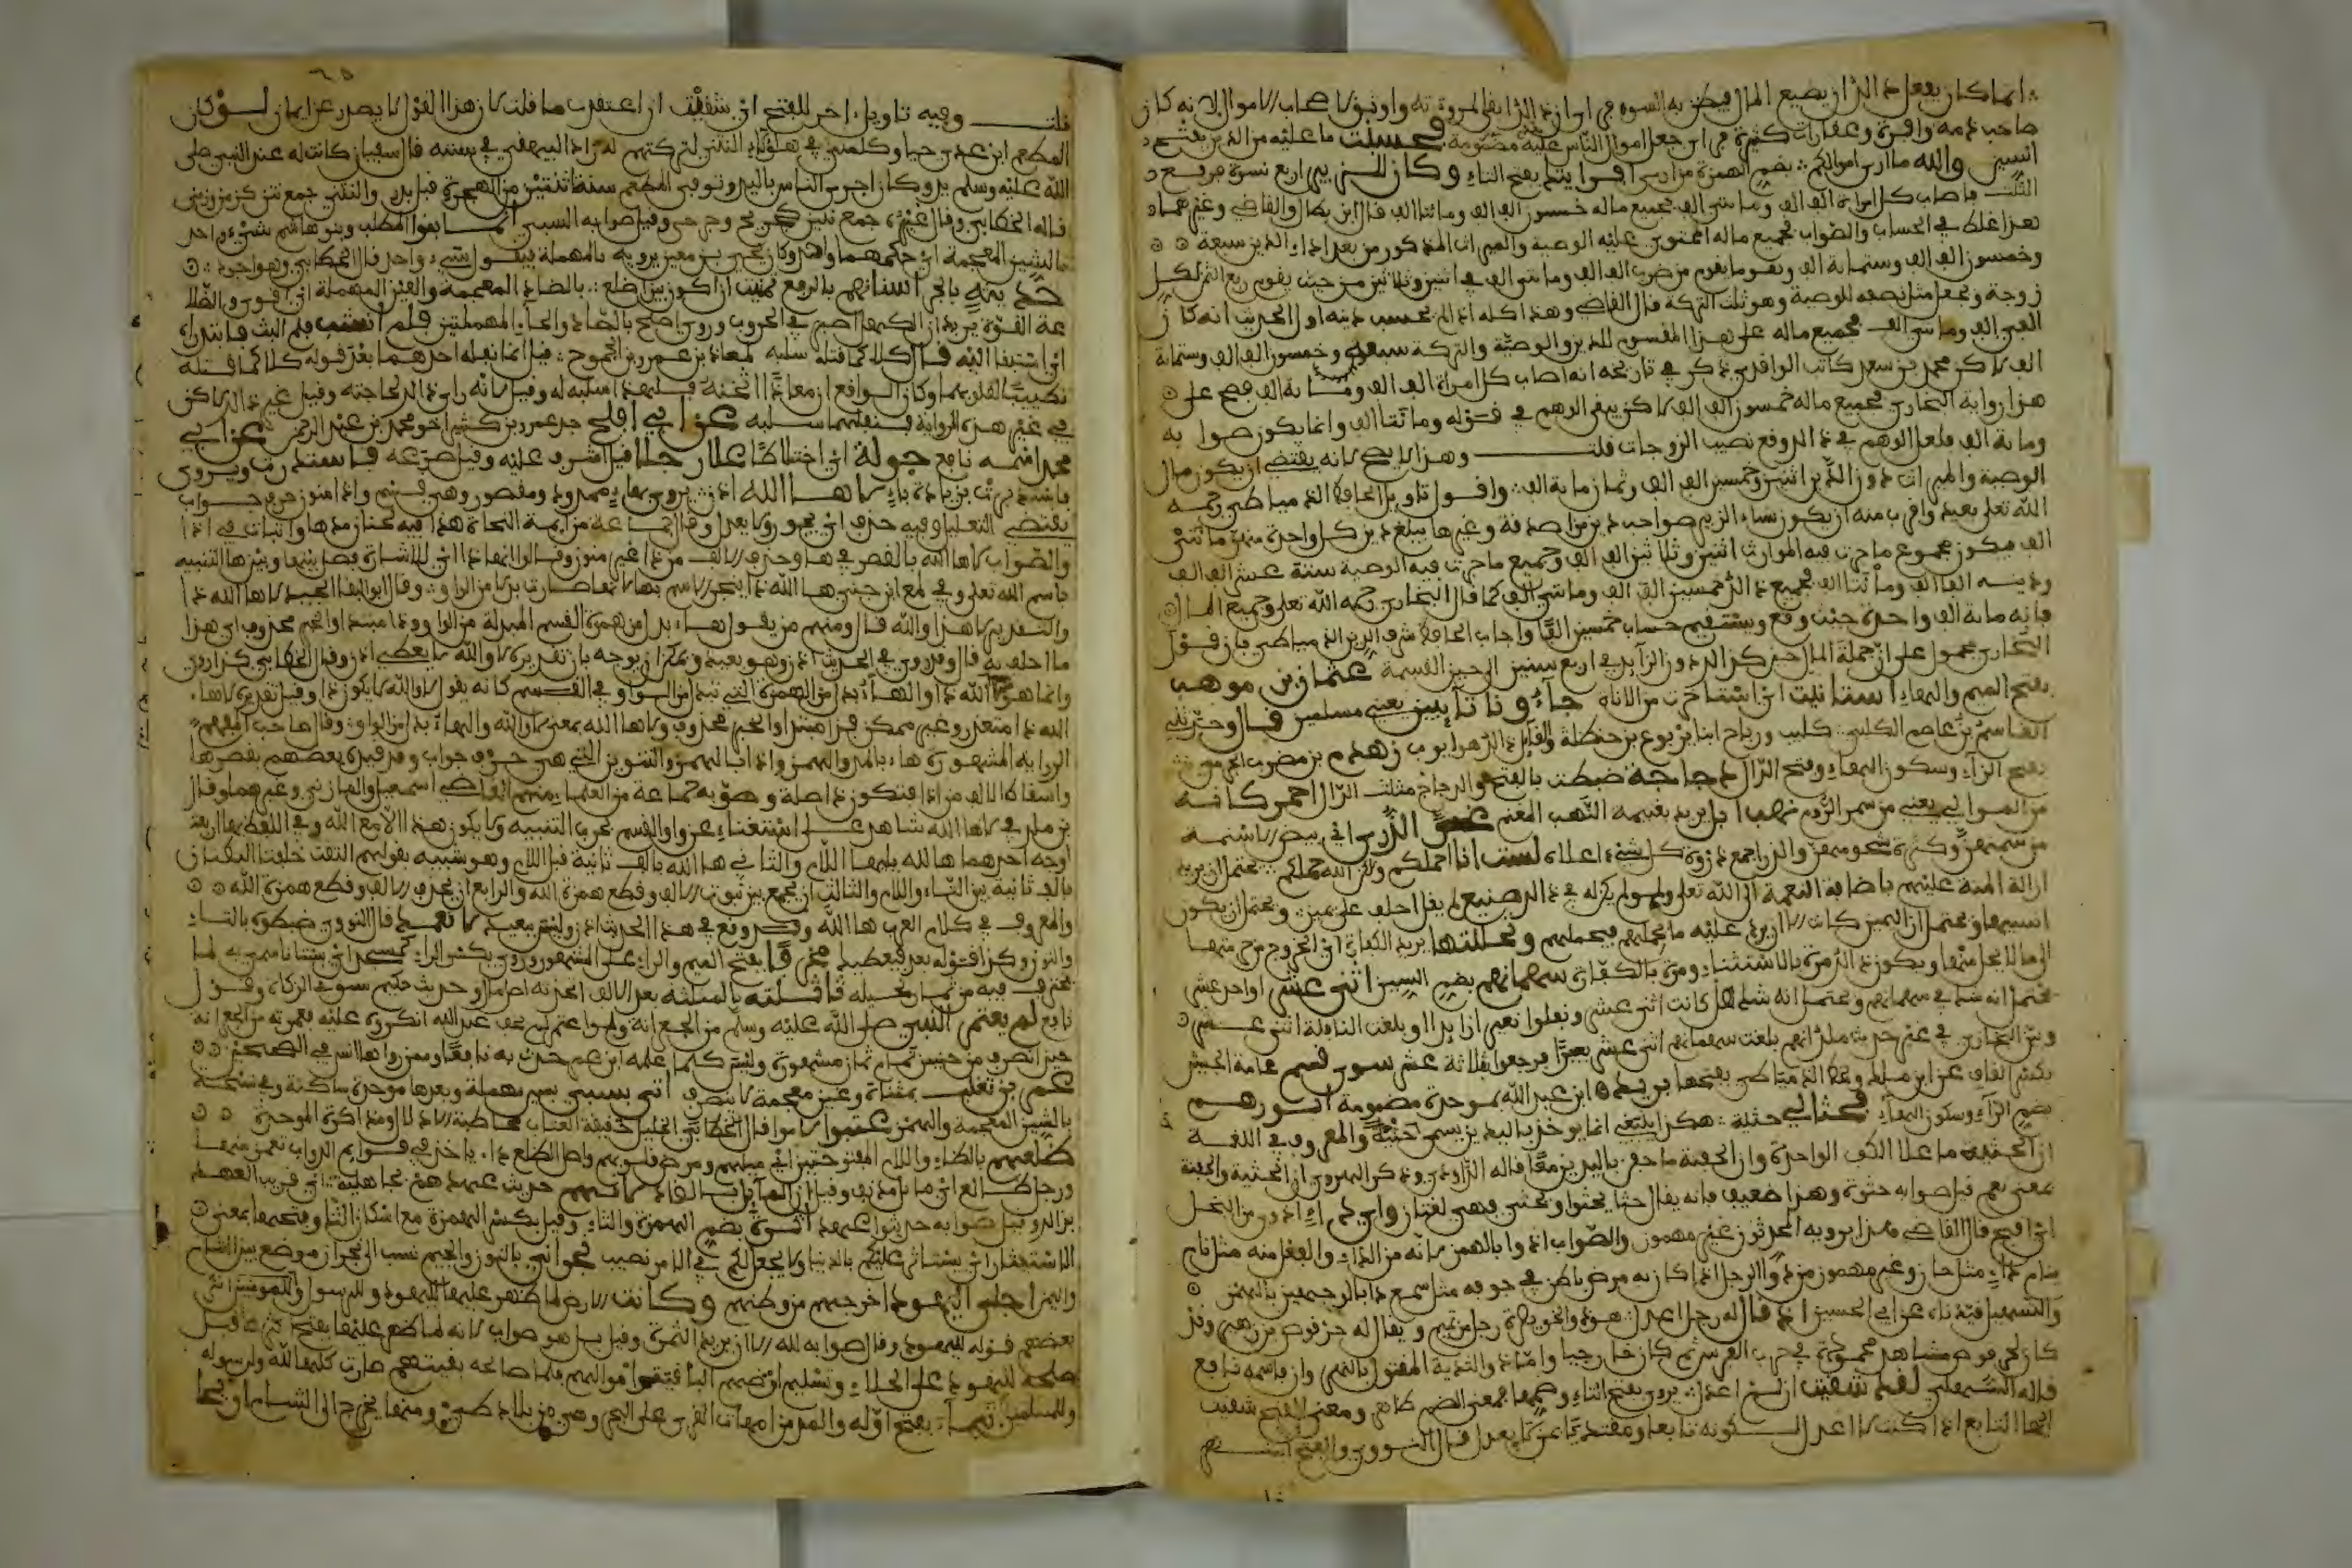 انما كان يفعل ذلك ان يضيع المال فيظن به السوء فرأى ان ذلك ابقى لمروءته واوثق لاصحاب الاموال لانه كان
صاحب ذمة وافرة وعقارات كثيرة فرأى جعل اموال الناس عليه مضمونة فحسبت ما عليه من الدين بفتح
السين والله ما أرى اموالكم بضم الهمزة من ارى افرا يتم بفتح التاء وكان للزبير اربع نسوة فرفع
الثلث فاصاب كل امراة الف الف ومائتي الف فجميع ماله خمسون الف الف ومائتا الف قال ابن بطال والقاضي وغيرهما
هذا غلط في الحساب والصواب فجميع ماله المحتوي عليه الوصية والميراث المذكور من بعد اداء الدين سبعة
وخمسون الف الف وستماية الف ويقوم من ضرب الف الف ومائتي الف في اثنين وثلاثين من حيث يقوم ربع الثمن لكل
زوجة وتجعل مثل نصفه للوصية وهو ثلث التركة قال القاضي وهذا كله اذا لم يحسب دينه اول الحديث انه كان
الفي الف ومائتي الف فجميع ماله على هذا المقسوم للدين والوصية والتركة سبعة وخمسون الف الف وستماية
الف لاكن محمد بن سعد كاتب الواقدي ذكر في تاريخه انه اصاب كل امراة الف الف ومائة الف فصح على
هذا رواية البخاري فجميع ماله خمسون الف الف لاكن يبقى الوهم في قوله ومائتا الف وانما يكون صوابه
وماية الف فلعل الوهم في ذلك وقع نصيب الزوجات قلت وهذا لا يصح لانه يقتضي ان يكون مال
الوصية والميراث دون الدين اثنين وخمسين الف الف وثمان ماية الف واقول تاويل الحافظ الدمياطي رحمه
الله تعلى بعيد واقرب منه ان يكون نساء الزبير صواحب دين من صدقة وغيرها يبلغ دين كل واحدة منهن مائتي
الف فيكون مجموع ما جرت فيه المواريث اثنين وثلاثين الف الف وجميع ما جرت فيه الوصية ستة عشر الف الف
ودينه الفا الف ومائتا الف فجميع ذلك خمسين الف الف ومائتي الف كما قال البخاري رحمه الله تعلى وجميع المال
فانه ماية الف واحدة حيث وقع ويستقيم حساب خمسين الفا واجاب الحافظ شرف الدين الدمياطي بان قول
البخاري محمول على ان جملة المال حين كذا لدون الزايد في اربع سنين الى حين القسمة عثمان بن موهب
بفتح الميم والهاء استانيت اي استاخرت من الاناة جاءونا تايبين يعني مسلمين قال وحدثني
القاسم بن عاصم الكليبي كليب ورياح ابنا يربوع بن حنظلة والقايل ذلك هو ايوب زهدم بن مضرب الجرمي
بفتح الزاء وسكون الهاء وفتح الدال دجاجة ضبطت بالفتح والدجاج مثلث الدال احمر كانه
من الموالي يعني من سبي الروم نهب ابل يريد بغنيمة النهب المغنم غر الذرى اي بيض الاسنمة
من سمنهن وكثرة شحومهن والذرا جمع ذروة كل شيء اعلاه لست انا احملكم ولكن الله حملكم يحتمل ان يريد
ازالة المنة عليهم باضافة النعمة الى الله تعلى ولو لم يكن له في ذلك صنيع لم يقل احلف على يمين ويحتمل ان يكون
انسيها ويحتمل ان اليمين كانت الا ان يرد عليه ما يحملهم فيحملهم وتحللتها يريد الكفارة اي الخروج من حرمتها
الى ما للحل منها ويكون ذلك مرة بالاستثناء ومرة بالكفارة سهمانهم بضم السين اثني عشر او احد عشر
يحتمل انه شك في سهمانهم ويحتمل انه شك هل كانت اثني عشر ونفلوا بعيرا او بلغت النافلة اثني عشر
وبين البخاري في غير حديث ملك انهم بلغت سهمانهم اثني عشر بعيرا فرجعوا بثلاثة عشر سوى قسم عامة الجيش
بكسر القاف عن ابن ملك وعند الدمياطي بفتحها بريد ابن عبد الله بموحدة مضمومة ابو رهم
بضم الراء وسكون الهاء فحثا لي حثية هكذا يلتقي انما يوخذ باليد يسمى حثية والمعروف في اللغة
ان الحثية ما علا الكف الواحدة وان الحفنة ما حفن باليدين معا قاله الداودي وذكر الهروي ان الحثية والحفنة
بمعنى نعم قيل صوابه حثوة وهذا ضعيف فانه يقال حثا يحثوا ويحثي فهي لغتان واي داء ادوى من البخل
اي اقبح قال القاضي هكذا يرويه المحدثون غير مهموز والصواب ادوا بالهمز لانه من الداء والفعل منه مثل نام
ينام داء مثل خاف وغير مهموز من دوى الرجل اذا كان به مرض باطن في جوفه مثل سمع دا بالوجهين بالهمز
والتسهيل قيدناه عن ابي الحسين اذ قال له رجل اعدل هو ذو الخويصرة رجل من تميم ويقال له حرقوص بن زهير وقد
كان لحرقوص مشاهد محمودة في حرب الفرس ثم كان خارجيا واما ذو الثدية المقتول بالنهر وان فاسمه نافع
قاله السهيلي لقد شقيت ان لم اعدل يروى بفتح التاء وضمها فمعنى الضم ظاهر ومعنى الفتح شقيت
ايها التابع اذا كنت لا اعدل لكونه تابعا ومقتديا بمن لا يعدل قال النووي والفتح اشهر
قلت وفيه تاويل اخر للفتح اي شقيت ان اعتقدت ما قلت لان هذا القول لا يصدر عن ايمان لو كان
المطعم ابن عدي حيا وكلمني في هؤلاء النتنى لتركتهم له زاد البيهقي في سننه قال سفيان كانت له عند النبي صلى
الله عليه وسلم يد وكان اجرى الناس باليد وتوفي المطعم سنة اثنتين من الهجرة قبل بدر والنتنى جمع نتن كزمن وزمنى
قاله الخطابي وقال غيره جمع نتين كجريح وجرحى وقيل صوابه السبي انما بنوا المطلب وبنو هاشم شيء واحد
بالشين المعجمة اي حكمهما واحد وكان يحيى بن معين يرويه بالمهملة فيقول سي واحد قال الخطابي وهو اجود
حديثة بالجر اسنانهم بالرفع تمنيت ان اكون بين اضلع بالضاد المعجمة والعين المهملة اي اقوى والضلا
عة القوة يريد ان الكهل اصبر في الحروب وروي اصلح بالصاد والحاء المهملتين فلم انشب فلم البث فابتدراه
اي استبقا اليه قال كلاكما قتله سلبه لمعاذ بن عمرو بن الجموح قيل انما نفله احدهما بعد قوله كلاكما قتله
تطييبا لقلوبهما وكان الواقع ان معاذا اثخنه فلهذا اسلبه له وقيل لانه راى ذلك لحاجته وقيل غير ذلك لاكن
في غير هذه الرواية فنفلهما سلبه عن ابي افلح هو عمرو بن كثير اخو محمد بن عبد الرحمن عن ابي
محمد اسمه نافع جولة اي اختلاطا علا رجلا قيل اشرف عليه وقيل صرعه فاستدرت ويروى
فاستدبرت بزيادة باء لاها الله اذن يروى بهاء ممدود ومقصور وهي قسم واذا منون حرف جواب
يقتضي التعليل وفيه حذف اي يجور ولا يعدل وقال جماعة من ايمة النحاة هذا فيه لحنان مدها واثبات في اذا
والصواب لاها الله بالقصر في ها وحذف الالف من ذا غير منون وقالوا انما ذا اي للاشارة فصل بينها وبين ها التنبيه
باسم الله تعلى وفي لمع ابن جني ها الله ذا بجر الاسم بها لانها صارت بدلا من الواو وقال ابو البقا الجيد لاها الله ذا
والتقدير لا هذا والله قال ومنهم من يقول هاء بدل من همزة القسم المبدلة من الواو وذا مبتدا والخبر محذوف اي هذا
ما احلف به قال وقد روي في الحديث اذن وهو بعيد ويمكن ان يوجه بان تقديره لا والله لا يعطي اذن وقال الخطابي كذا روي
وانما هو لاها الله ذا والهاء بدل من الهمزة التي تبدل من الواو في القسم كانه يقول لا والله لا يكون ذا وقيل تقديره لاها
الله ذا متعذر وغير ممكن فذا مبتدا والخبر محذوف ولاها الله بمعنى لا والله والهاء بدل من الواو وقال صاحب المفهم
الرواية المشهورة هاء بالمد والهمز واذا بالهمز والتنوين التي هي حرف جواب وقد قيده بعضهم بقصرها
واسقاط الالف من اذا فتكون ذا صلة وصوبه جماعة من العلماء منهم القاضي اسمعيل والمازني وغيرهما وقال
بن ملك في لاها الله شاهد على استغناء عن واو القسم بحرف التنبيه ولا يكون هذا الا مع الله وفي اللفظ بها اربعة
اوجه احدهما هالله يليها اللام والثاني ها الله بالف ثانية قبل اللام وهو شبيه بقولهم التقت حلقتا البطان
بالف ثانية بين التاء واللام والثالث ان يجمع بين ثبوت الالف وقطع همزة الله والرابع ان يحذف الالف وقطع همزة الله
والمعروف في كلام العرب ها الله وقد وقع في هذا الحديث اذن وليس ببعيد لا نعمد قال النووي ضبطوه بالتاء
والنون وكذا قوله بعد فيعطيك مخرفا بفتح الميم والراء على المشهور وروي بكسر الراء كمسجد اي بستانا سمي به لما
يخترف فيه من ثمار نخيله تاثلته بالمثلثة بعد الالف اتخذته اصل مال وحديث حكيم سبق في الزكاة وقول
نافع لم يعتمر النبي صلى الله عليه وسلم من الجعرانة ولو اعتمر لم يخف عبد الله انكروه عليه بعمرته من الجعرانة
حين انصرف من حنين تمام ثمان مشهورة وليس كلما علمه ابن عمر حدث به نافعا وممن رواها انس في الصحيح
عمرو بن تغلب بمثناة وغين معجمة لا ينصرف اتى بسبي بسين مهملة وبعدها موحدة ساكنة وفي نسخة
بالشين المعجمة والهمز عتبوا لاموا قال الخطابي الخليل حقيقة العتاب مخاطبة الاذلال ومذاكرة الموجدة
ظلعهم بالظاء واللام المفتوحتين اي ميلهم ومرض قلوبهم واصل الظلع داء ياخذ في قوايم الدواب تغمز منها
ورجل ظالع اي مايل مذنب وقيل ان المايل بالضاد لاتهم حديث عهد هم بجاهلية اي قريب العهد
بذلك وقيل صوابه حديثوا عهد اثرة بضم الهمزة والثاء وقيل بكسر الهمزة مع اسكان الثاء وفتحهما بمعنى
الاستيثار اي يستاثر عليكم بالدنيا ولا يجعل لكم في الامر نصيب نجراني بالنون والجيم نسب الى نجران موضع بين الشام
واليمن اجلى اليهود اخرجهم من وطنهم وكانت الارض لما ظهر عليها لليهود وللرسول وللمؤمنين انكر
بعضهم قوله لليهود وقال صوابه لله الا ان يريد الثمرة وقيل بل هو صواب لانه لما ظهر عليها بفتح اكثرها قبل
صلحه لليهود على الجلاء وتسليم ارضهم اليه فبقيت اموالهم فلما صالحه بقيتهم صارت كلها لله ولرسوله
وللمسلمين تيماء بفتح اوله والمد من امهات القرى على البحر وهي من بلاد طيء ومنها يخرج الى الشام اريحا